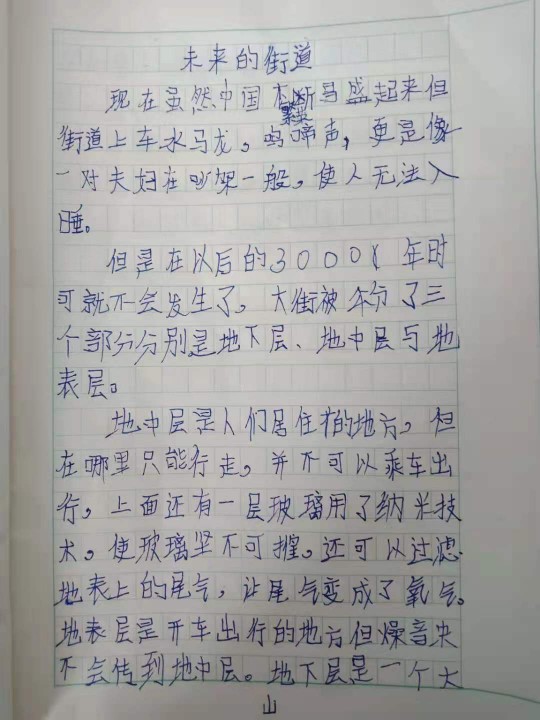 未来的街道
现在虽然中国不断繁盛起来但
街道上车水马龙。鸣啼声，更是像
一对夫妇在吵架一般。使人无法入
睡。
但是在以后的30001年时
可就不会发生了。大街被分了三
个部分分别是地下层、地中层与地
表层。
地中层是人们居住的地方。但
在哪里只能行走，并不可以乘车出
行。上面还有一层玻璃用了纳米技
术。使玻璃坚不可摧。还可以过滤
地表上的尾气，让尾气变成了氧气。
地表层是开车出行的地方但燥音央
不会传到地中层。地下层是一个大
山